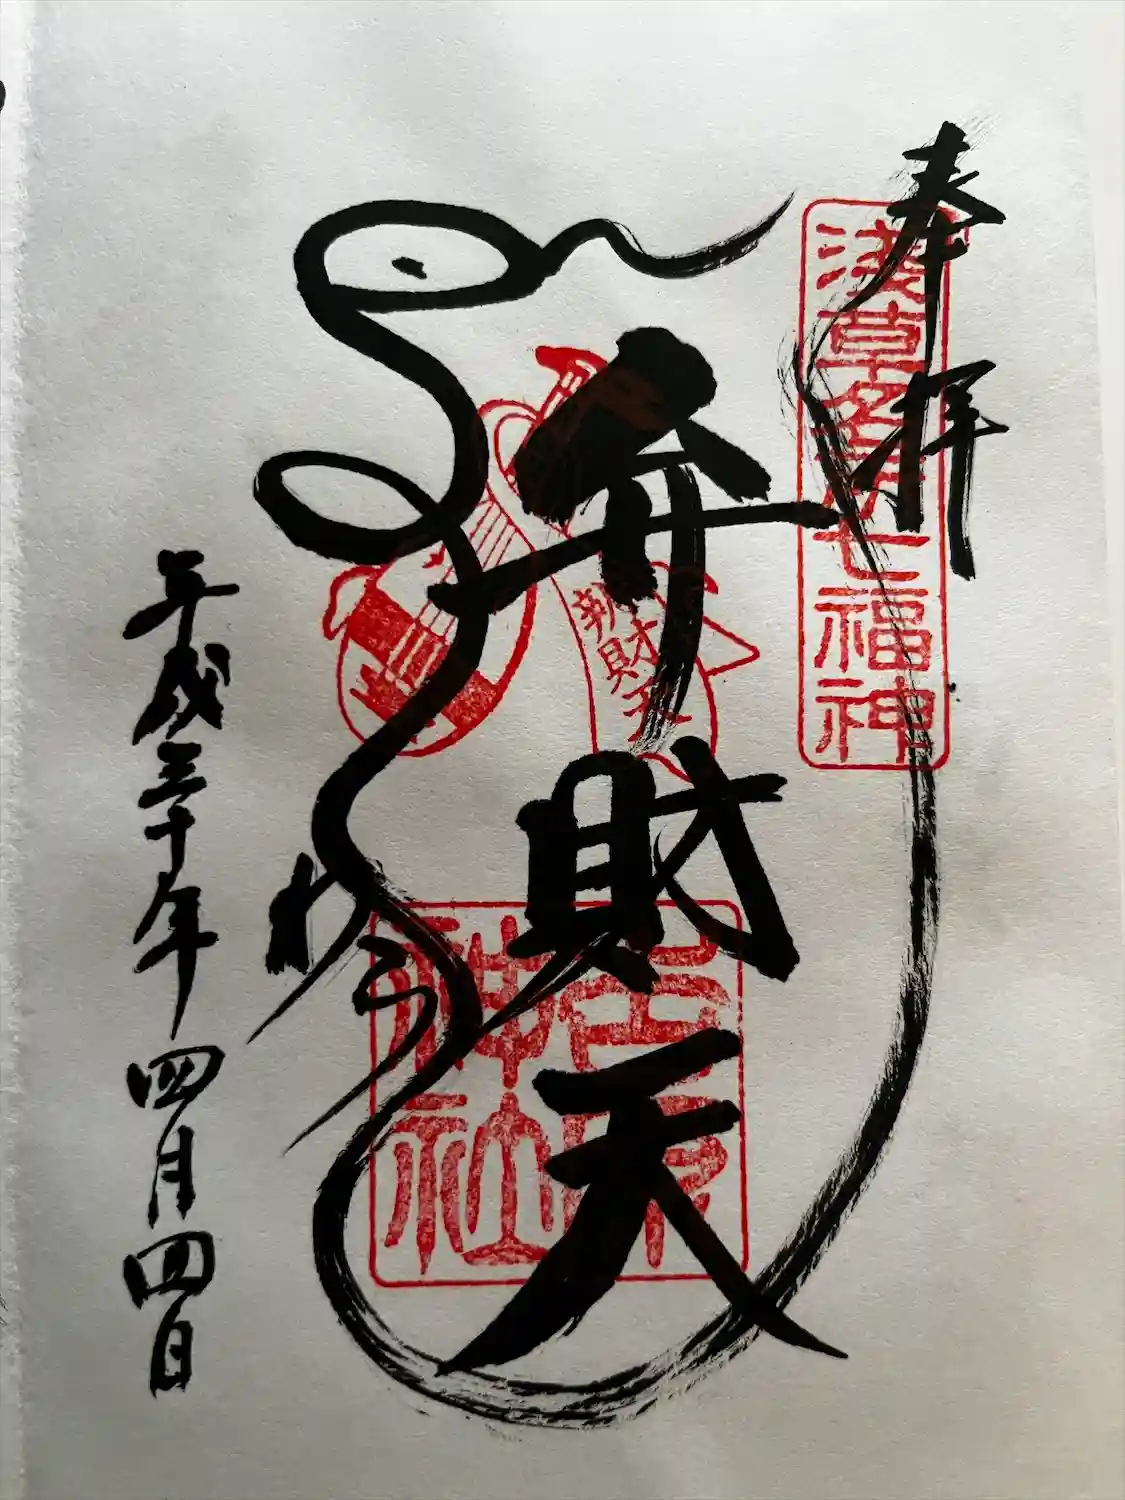 奉拝
浅草名所七福神
弁財天
弁財天
吉原神社
平成三十年四月四日